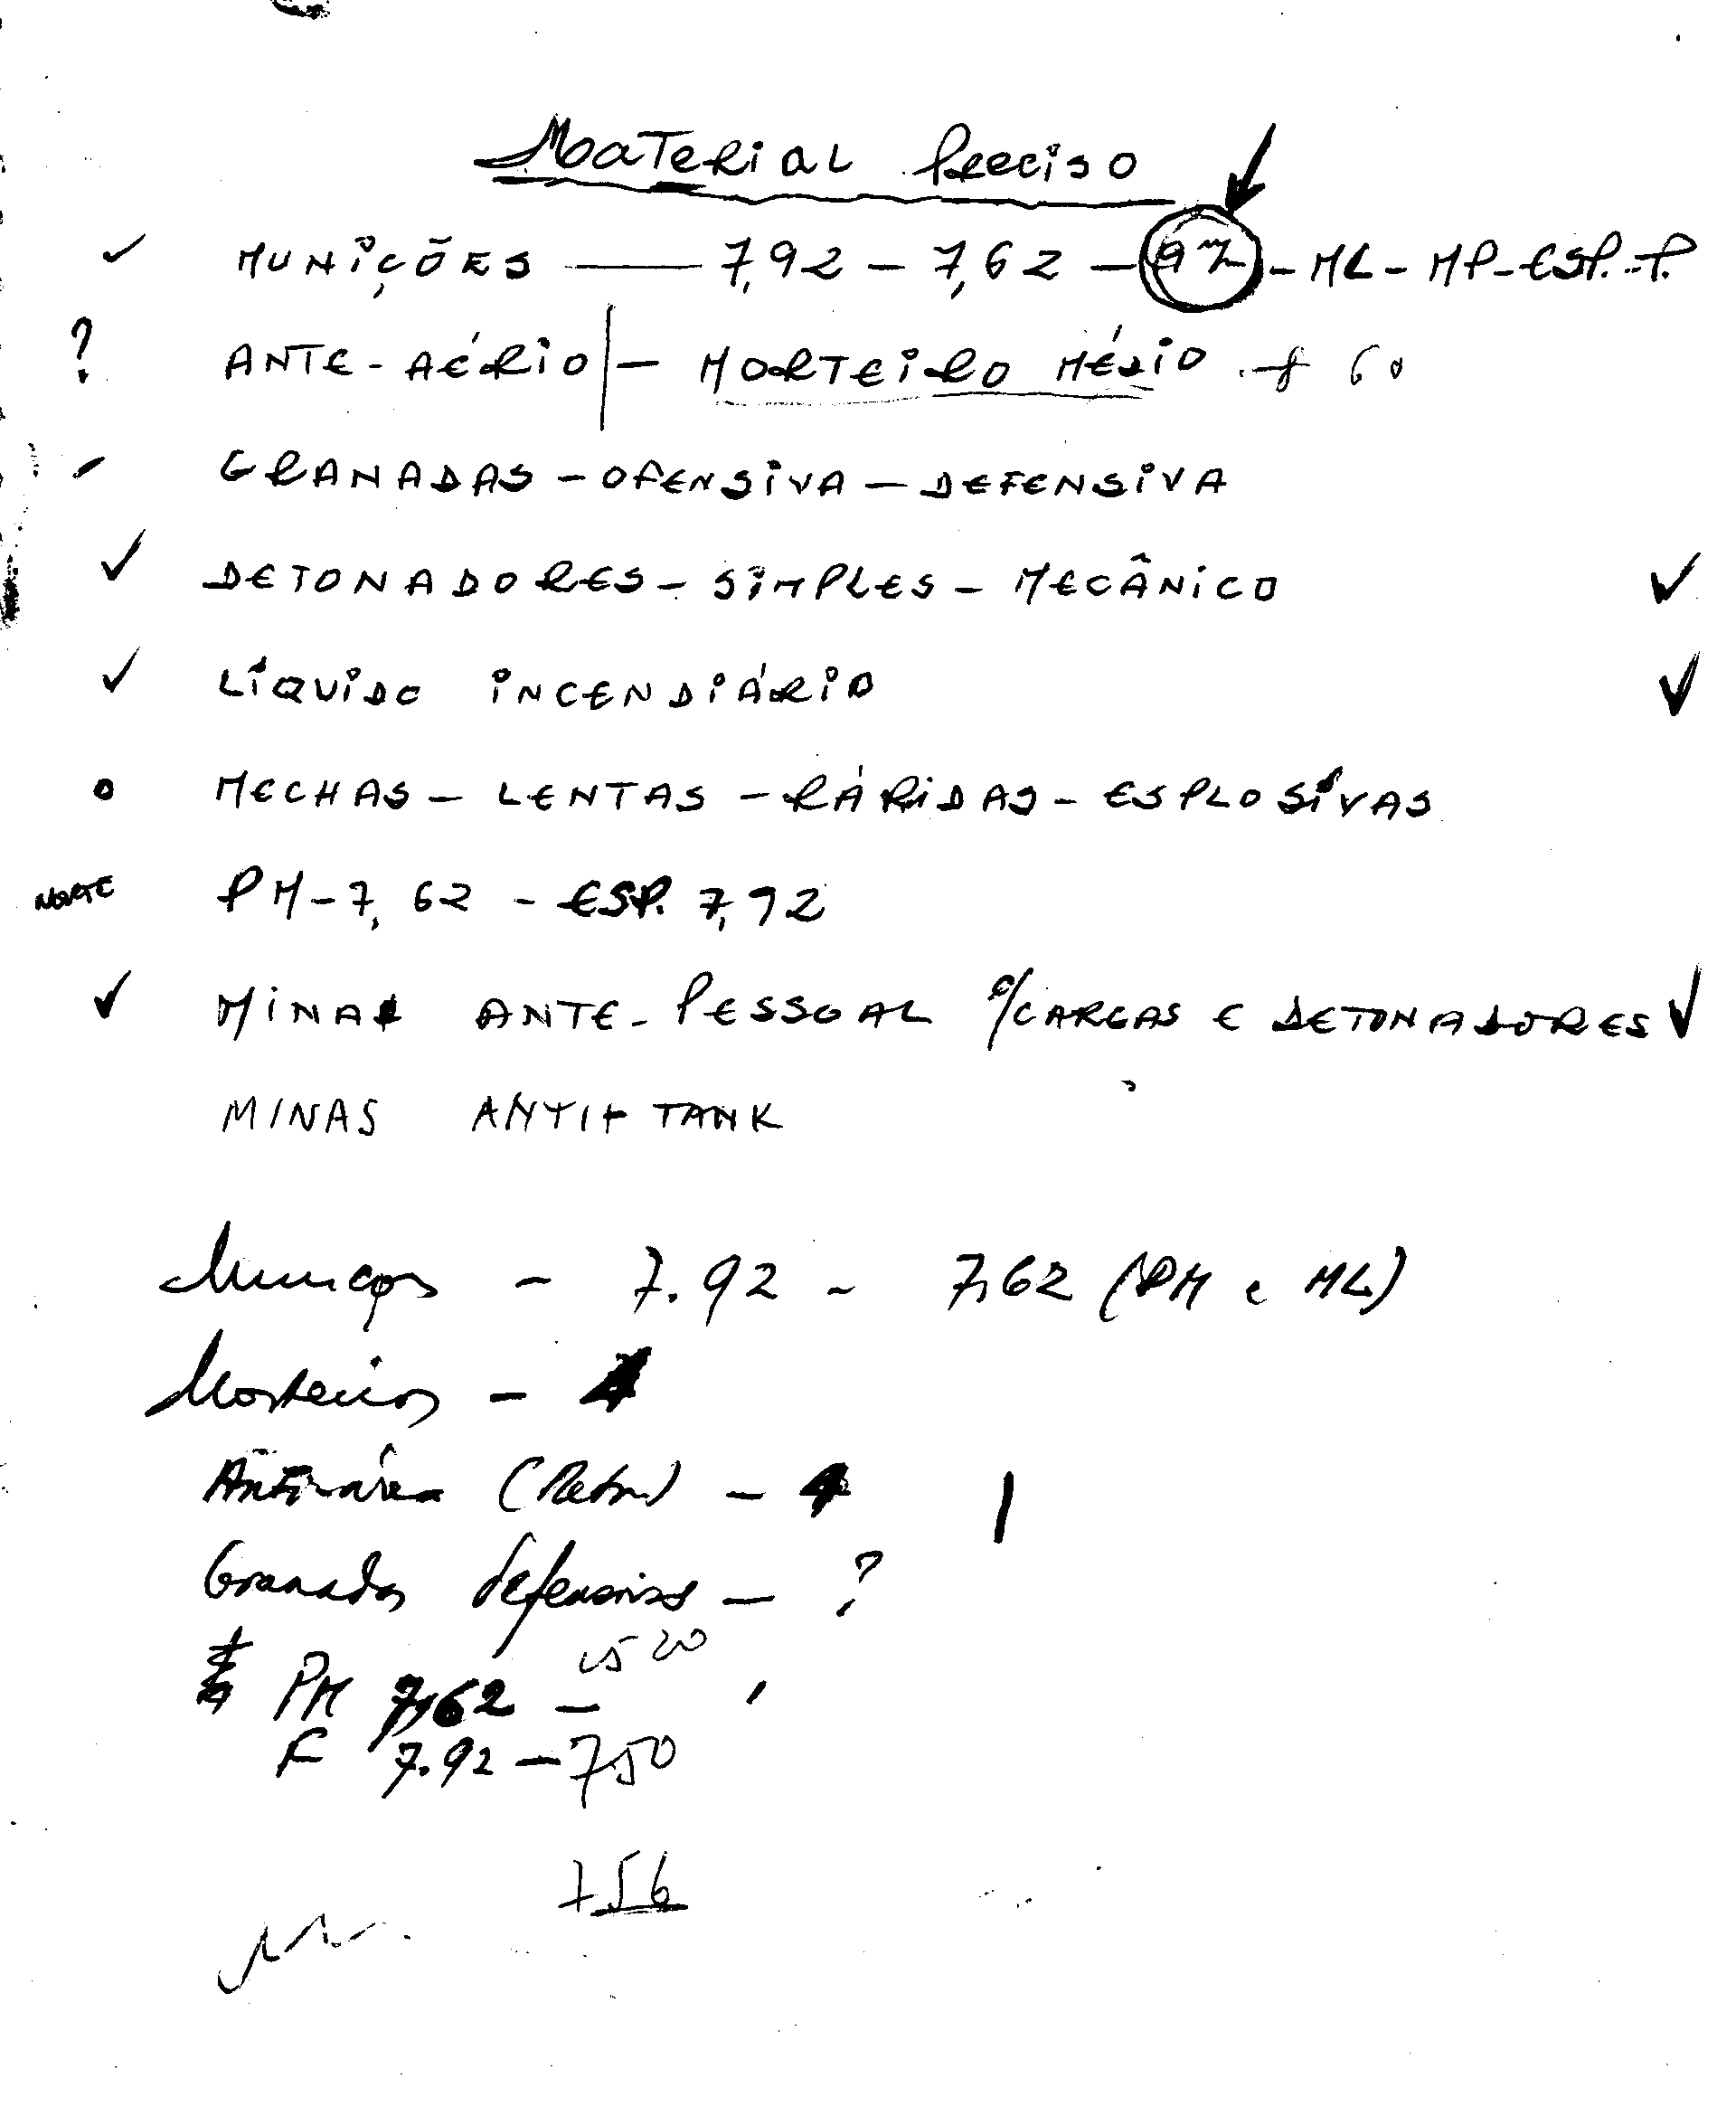 Material Preciso
MUNIÇÕES — 7,92 – 7,62 – 9 m – ML – MP – ESP. – P.
? ANTE-AÉRIO – MORTEIRO MÉDIO + 60
GRANADAS – OFENSIVA – DEFENSIVA
✓ DETONADORES – SIMPLES – MECÂNICO ✓
✓ LÍQUIDO INCENDIÁRIO ✓
MECHAS – LENTAS – RÁPIDAS – ESPLOSÍVAS
NORTE PM – 7,62 – ESP. 7,92
✓ MINAS ANTE-PESSOAL C/CARGAS E DETONADORES ✓
MINAS ANTI-TANK
Munições – 7.92 – 7,62 (PM e ML)
Morteiros – 4
Anti-aérea – 4
Granadas defensivas – ?
PM 7,62 – 1520
F 7.92 – 750
756